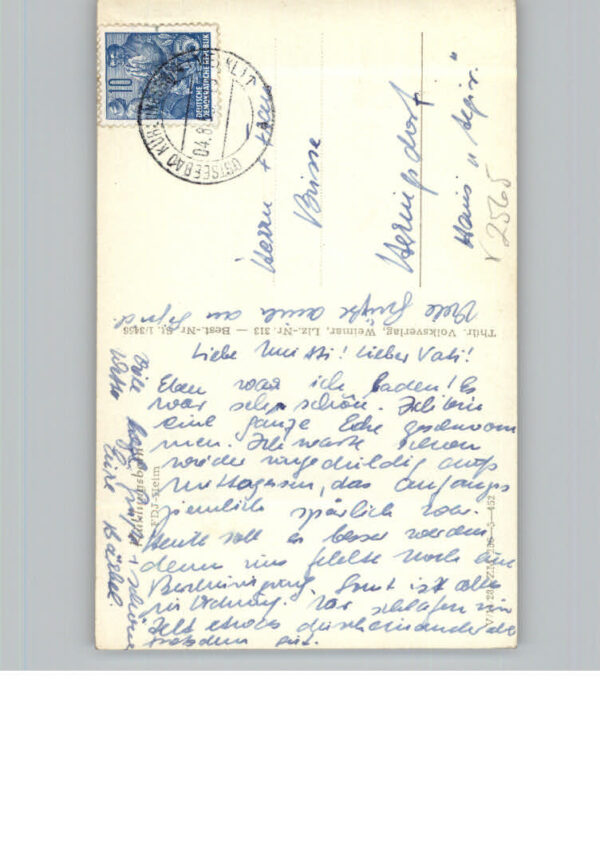 10
DEUTSCHE
DEMOKRATISCHE REPUBLIK
OSTSEEBAD KÜHLUNGSBORN
04.8
Herrn + Frau
Brisse
Heringsdorf
Haus "
V 2565
Viele Grüße auch an
Thür. Volksverlag, Weimar, Liz.-Nr. 313 — Best.-Nr. St. 1/3456
Liebe Mutti! Lieber Vati!
Eben war ich baden! Es
war sehr schön. Ich bin
eine ganze Ecke geschwom
men. Ich warte schon
wieder ungeduldig aufs
Mittagessen, das anfangs
ziemlich spärlich war.
Heute soll es besser werden,
denn uns fehlte noch die
Bescheinigung. Sonst ist alles
in Ordnung. Wir schlafen im
Zelt etwas durcheinander
trotzdem gut.
Viele Grüße + schöne
Eure Bärbel.
Kühlungsborn
FDJ-Heim